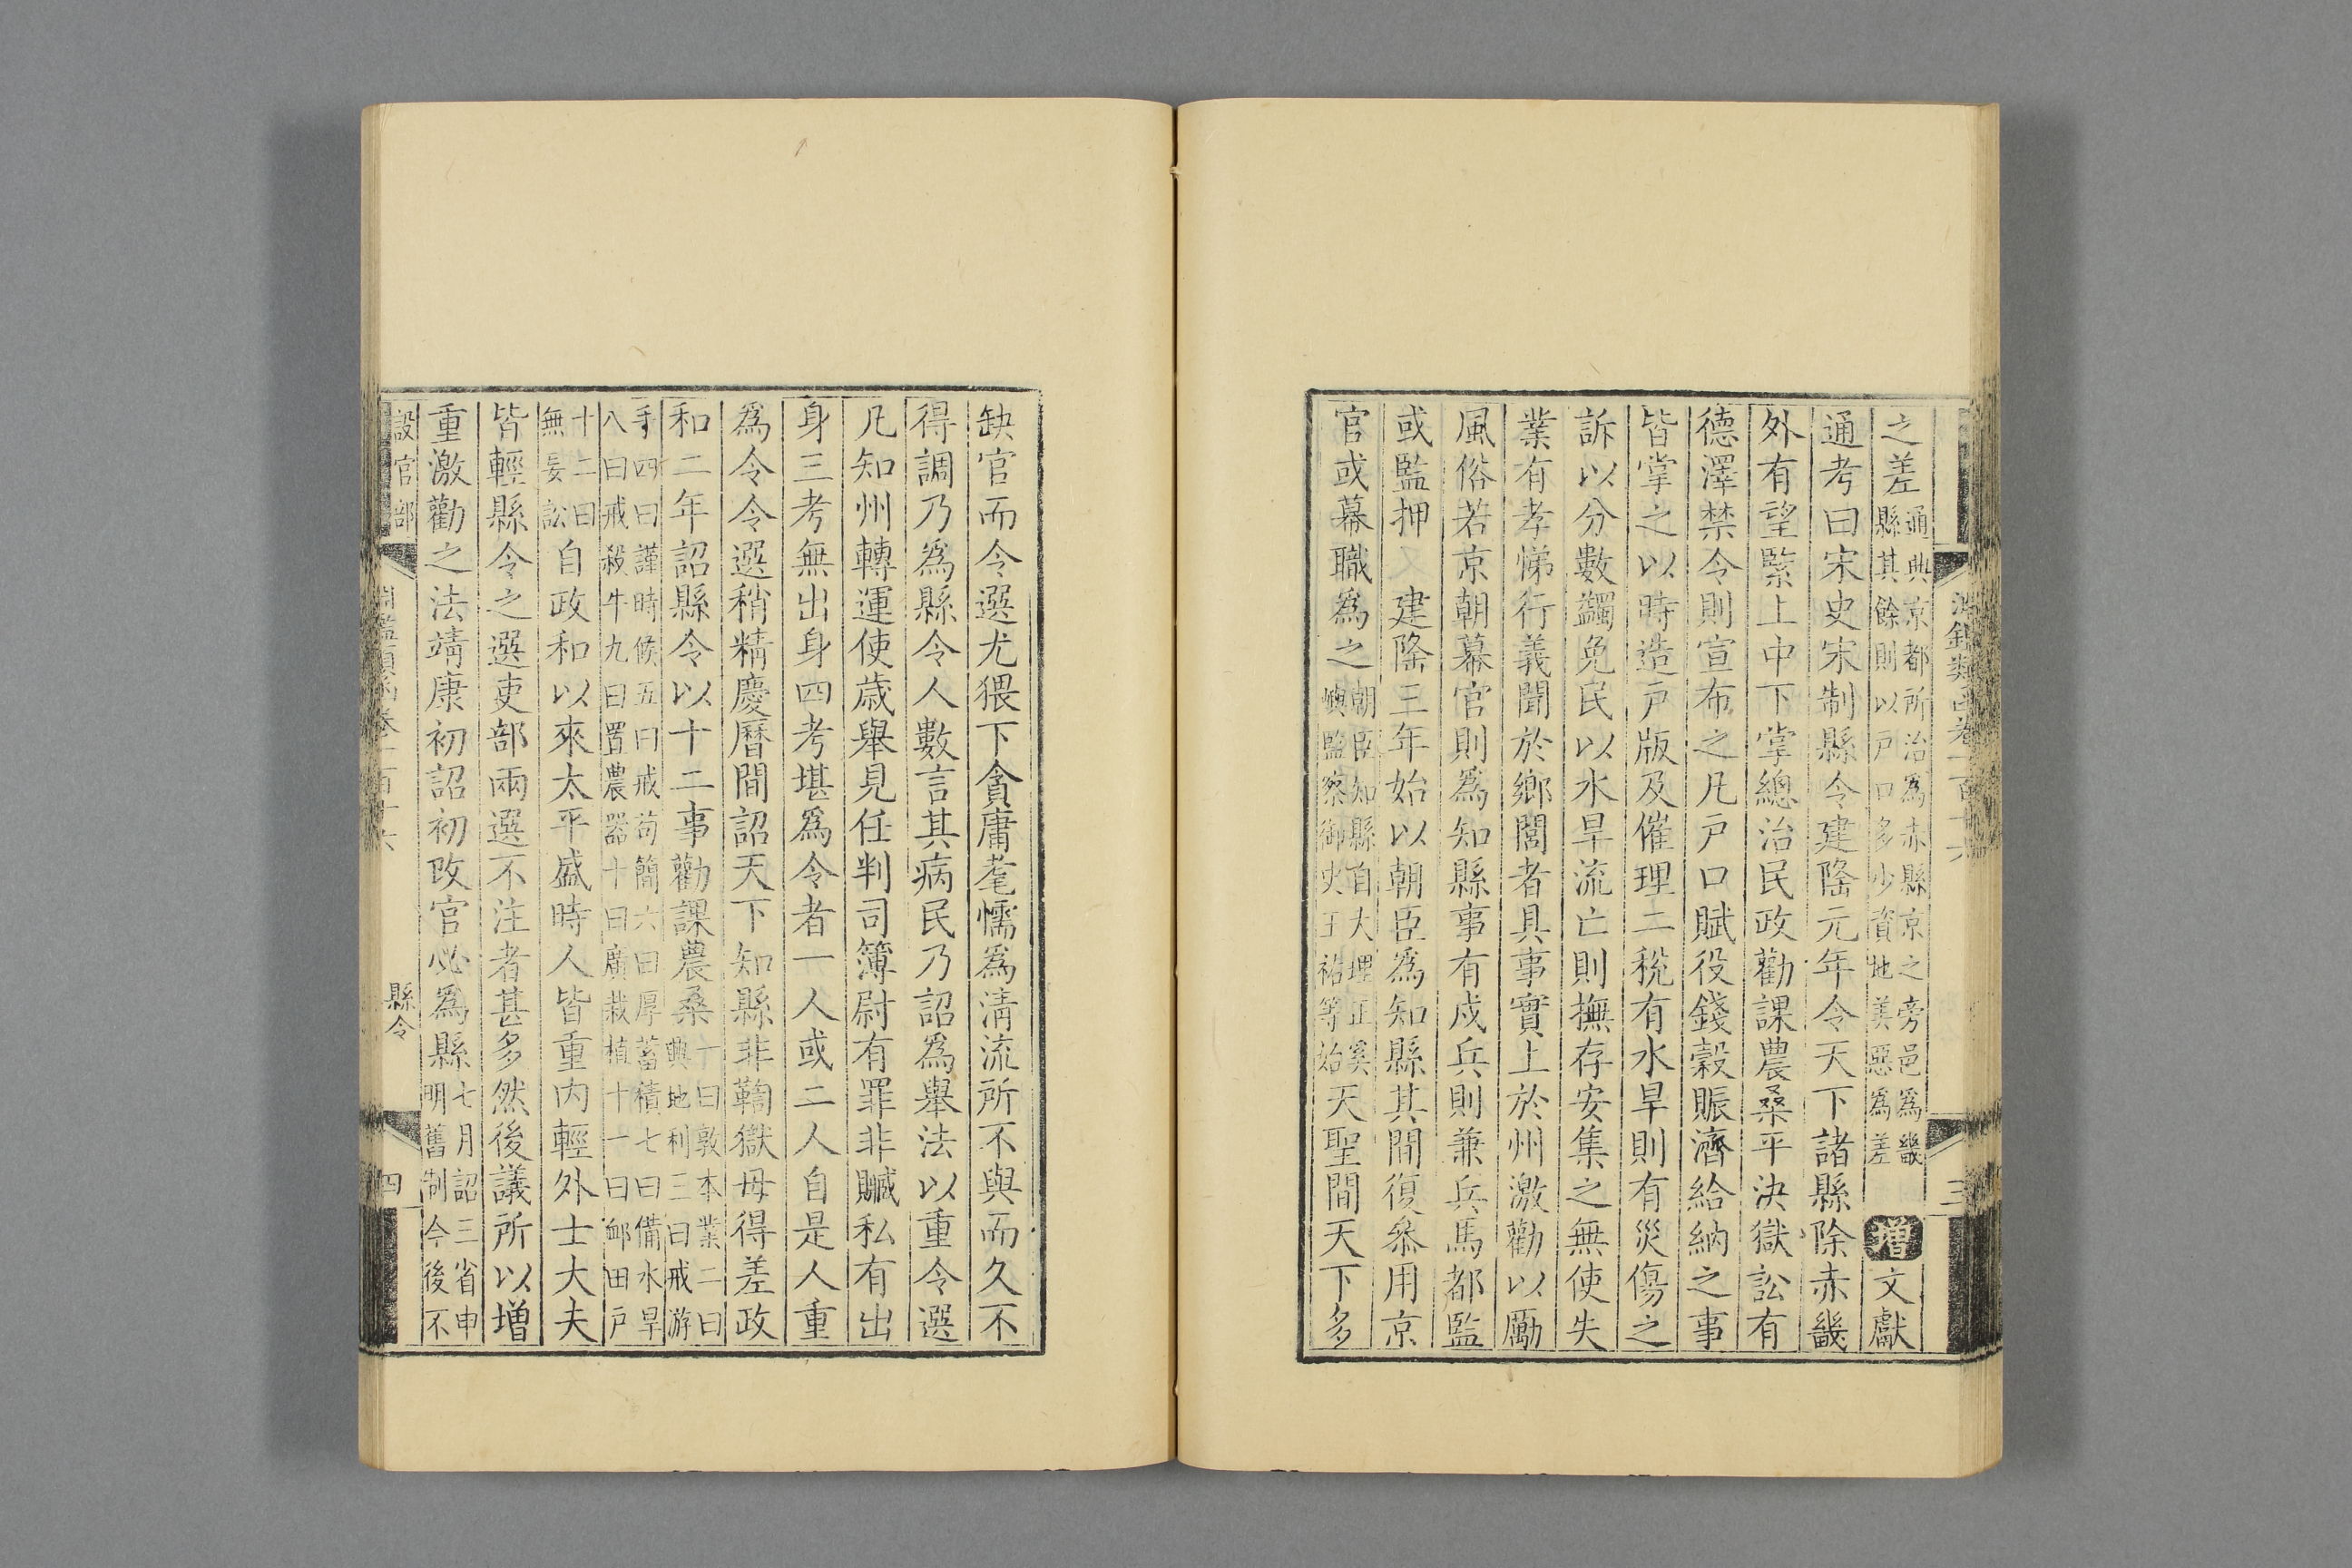 淵鑑類函卷一百十六 三
之差通典京都所治爲赤縣京之旁邑爲畿縣其餘則以戸口多少資地美惡爲差 增文獻
通考曰宋史宋制縣令建隆元年令天下諸縣除赤畿
外有望緊上中下掌總治民政勸課農桑平決獄訟有
德澤禁令則宣布之凡戸口賦役錢穀賑濟給納之事
皆掌之以時造戸版及催理二稅有水旱則有災傷之
訴以分數蠲免民以水旱流亡則撫存安集之無使失
業有孝悌行義聞於鄉閭者具事實上於州激勸以勵
風俗若京朝幕官則爲知縣事有戍兵則兼兵馬都監
或監押 又建隆三年始以朝臣爲知縣其間復叅用京
官或幕職爲之朝臣知縣自大理正奚嶼監察御史王祐等始天聖間天下多
缺官而令選尤猥下貪庸耄懦爲淸流所不與而久不
得調乃爲縣令人數言其病民乃詔爲舉法以重令選
凡知州轉運使歲舉見任判司簿尉有罪非贓私有出
身三考無出身四考堪爲令者一人或二人自是人重
爲令令選稍精慶曆間詔天下知縣非鞫獄毋得差政
和二年詔縣令以十二事勸課農桑一曰敦本業二曰興地利三曰戒游
手四曰謹時候五曰戒苟簡六曰厚蓄積七曰備水旱八曰戒殺牛九曰置農器十曰廣栽植十一曰卹田戸
十二曰無妄訟自政和以來太平盛時人皆重内輕外士大夫
皆輕縣令之選吏部兩選不注者甚多然後議所以增
重激勸之法靖康初詔初改官必爲縣七月詔三省申明舊制今後不
設官部 淵鑑類函卷一百十六 縣令 四